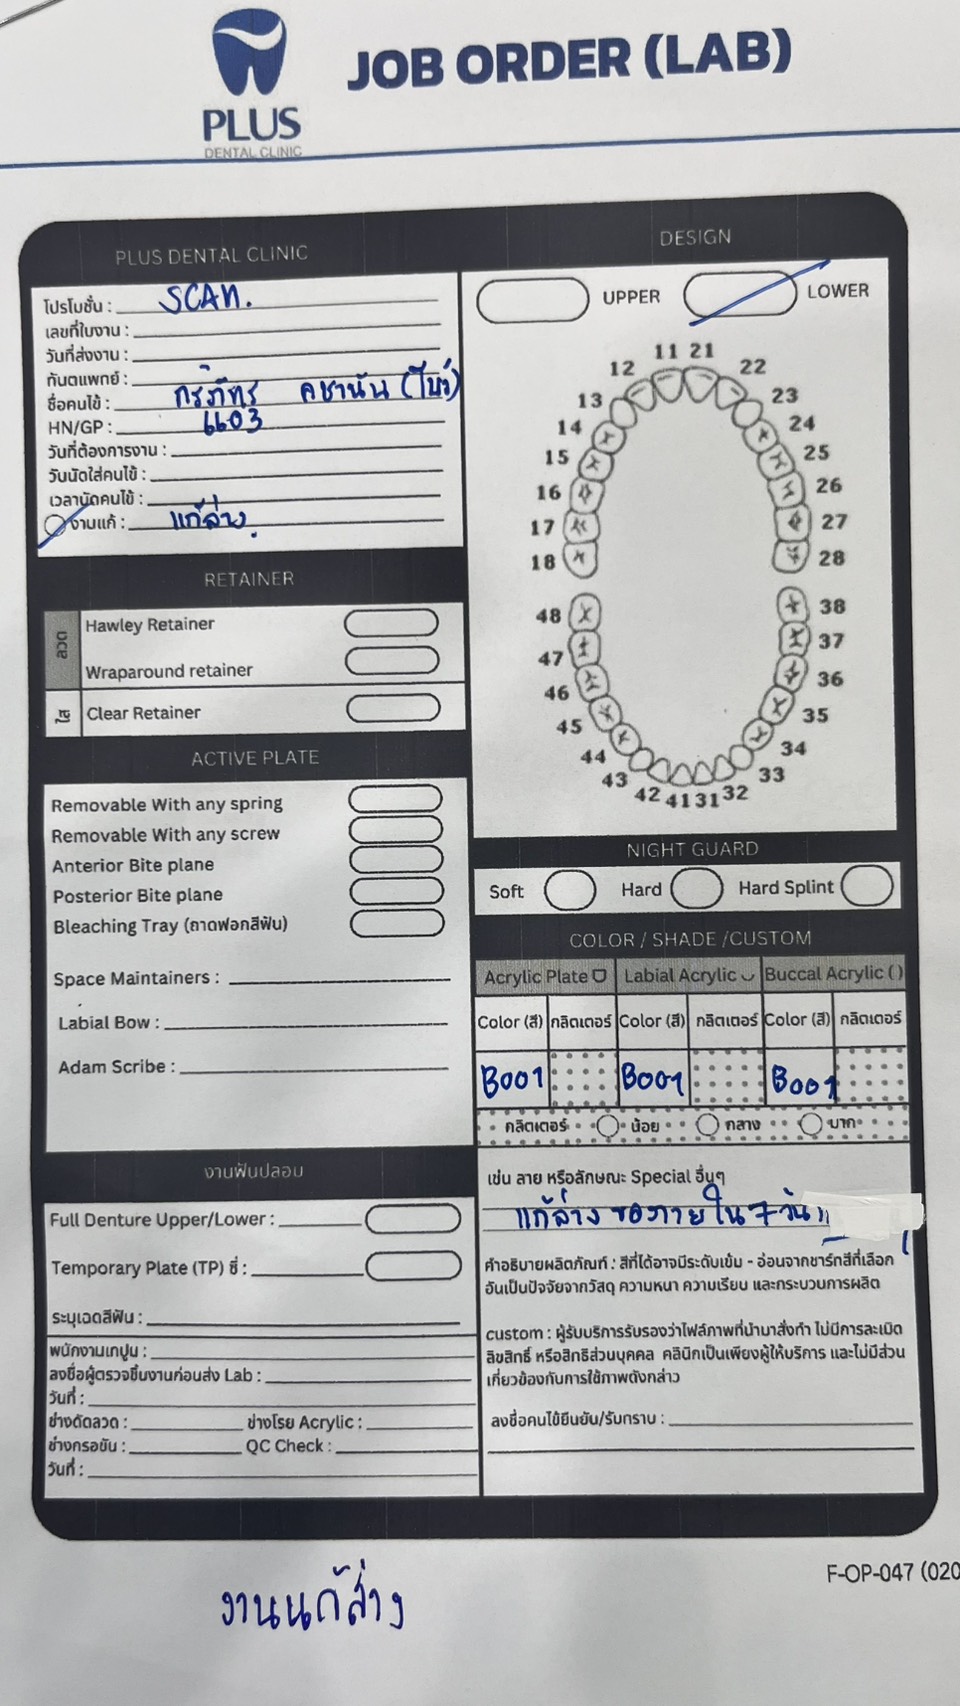 PLUS
DENTAL CLINIC
JOB ORDER (LAB)
PLUS DENTAL CLINIC
โปรโมชั่น : SCAN.
เลขที่ใบงาน :
วันที่ส่งงาน :
ทันตแพทย์ :
ชื่อคนไข้ : กรภัทร คชานัน
HN/GP : 6603
วันที่ต้องการงาน :
วันนัดใส่คนไข้ :
เวลานัดคนไข้ :
งานแก้ : แก้ล่าง
RETAINER
ลวด
Hawley Retainer
Wraparound retainer
ใส
Clear Retainer
ACTIVE PLATE
Removable With any spring
Removable With any screw
Anterior Bite plane
Posterior Bite plane
Bleaching Tray (ถาดฟอกสีฟัน)
Space Maintainers :
Labial Bow :
Adam Scribe :
งานฟันปลอม
Full Denture Upper/Lower :
Temporary Plate (TP) ซี่ :
ระบุเฉดสีฟัน :
พนักงานเทปูน :
ลงชื่อผู้ตรวจชิ้นงานก่อนส่ง Lab :
วันที่ :
ช่างดัดลวด : ช่างโรย Acrylic :
ช่างกรอขัน : QC Check :
วันที่ :
DESIGN
UPPER LOWER
11 21
12 22
13 23
14 24
15 25
16 26
17 27
18 28
48 38
47 37
46 36
45 35
44 34
43 33
42 41 31 32
NIGHT GUARD
Soft Hard Hard Splint
COLOR / SHADE /CUSTOM
Acrylic Plate Labial Acrylic Buccal Acrylic ( )
Color (สี) กลิตเตอร์ Color (สี) กลิตเตอร์ Color (สี) กลิตเตอร์
B001 B001 B001
กลิตเตอร์ น้อย กลาง มาก
เช่น ลาย หรือลักษณะ Special อื่นๆ
แก้ล่าง ขอภายใน 7 วัน
คำอธิบายผลิตภัณฑ์ : สีที่ได้อาจมีระดับเข้ม - อ่อนจากชาร์ทสีที่เลือก
อันเป็นปัจจัยจากวัสดุ ความหนา ความเรียบ และกระบวนการผลิต
custom : ผู้รับบริการรับรองว่าไฟล์ภาพที่นำมาสั่งทำ ไม่มีการละเมิด
ลิขสิทธิ์ หรือสิทธิส่วนบุคคล คลินิกเป็นเพียงผู้ให้บริการ และไม่มีส่วน
เกี่ยวข้องกับการใช้ภาพดังกล่าว
ลงชื่อคนไข้ยืนยัน/รับทราบ :
F-OP-047 (020
งานแก้ล่าง